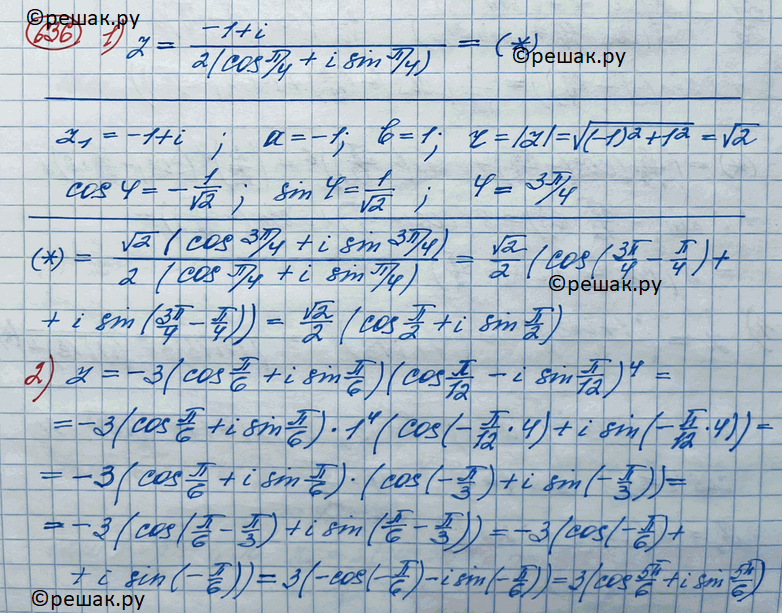 ©решак.ру
636 1) z = (-1+i)/(2(cos π/4 + i sin π/4)) = (*)
©решак.ру
z₁ = -1+i ; a = -1; b = 1; r = |z| = √((-1)²+1²) = √2
cos φ = -1/√2 ; sin φ = 1/√2 ; φ = 3π/4
(*) = (√2 (cos 3π/4 + i sin 3π/4))/(2 (cos π/4 + i sin π/4)) = √2/2 (cos(3π/4 - π/4) +
©решак.ру
+ i sin(3π/4 - π/4)) = √2/2 (cos π/2 + i sin π/2)
2) z = -3(cos π/6 + i sin π/6)(cos π/12 - i sin π/12)⁴ =
= -3(cos π/6 + i sin π/6) · 1⁴ (cos(-π/12 · 4) + i sin(-π/12 · 4)) =
= -3(cos π/6 + i sin π/6) · (cos(-π/3) + i sin(-π/3)) =
= -3(cos(π/6 - π/3) + i sin(π/6 - π/3)) = -3(cos(-π/6) +
+ i sin(-π/6)) = 3(-cos(-π/6) - i sin(-π/6)) = 3(cos 5π/6 + i sin 5π/6)
©решак.ру